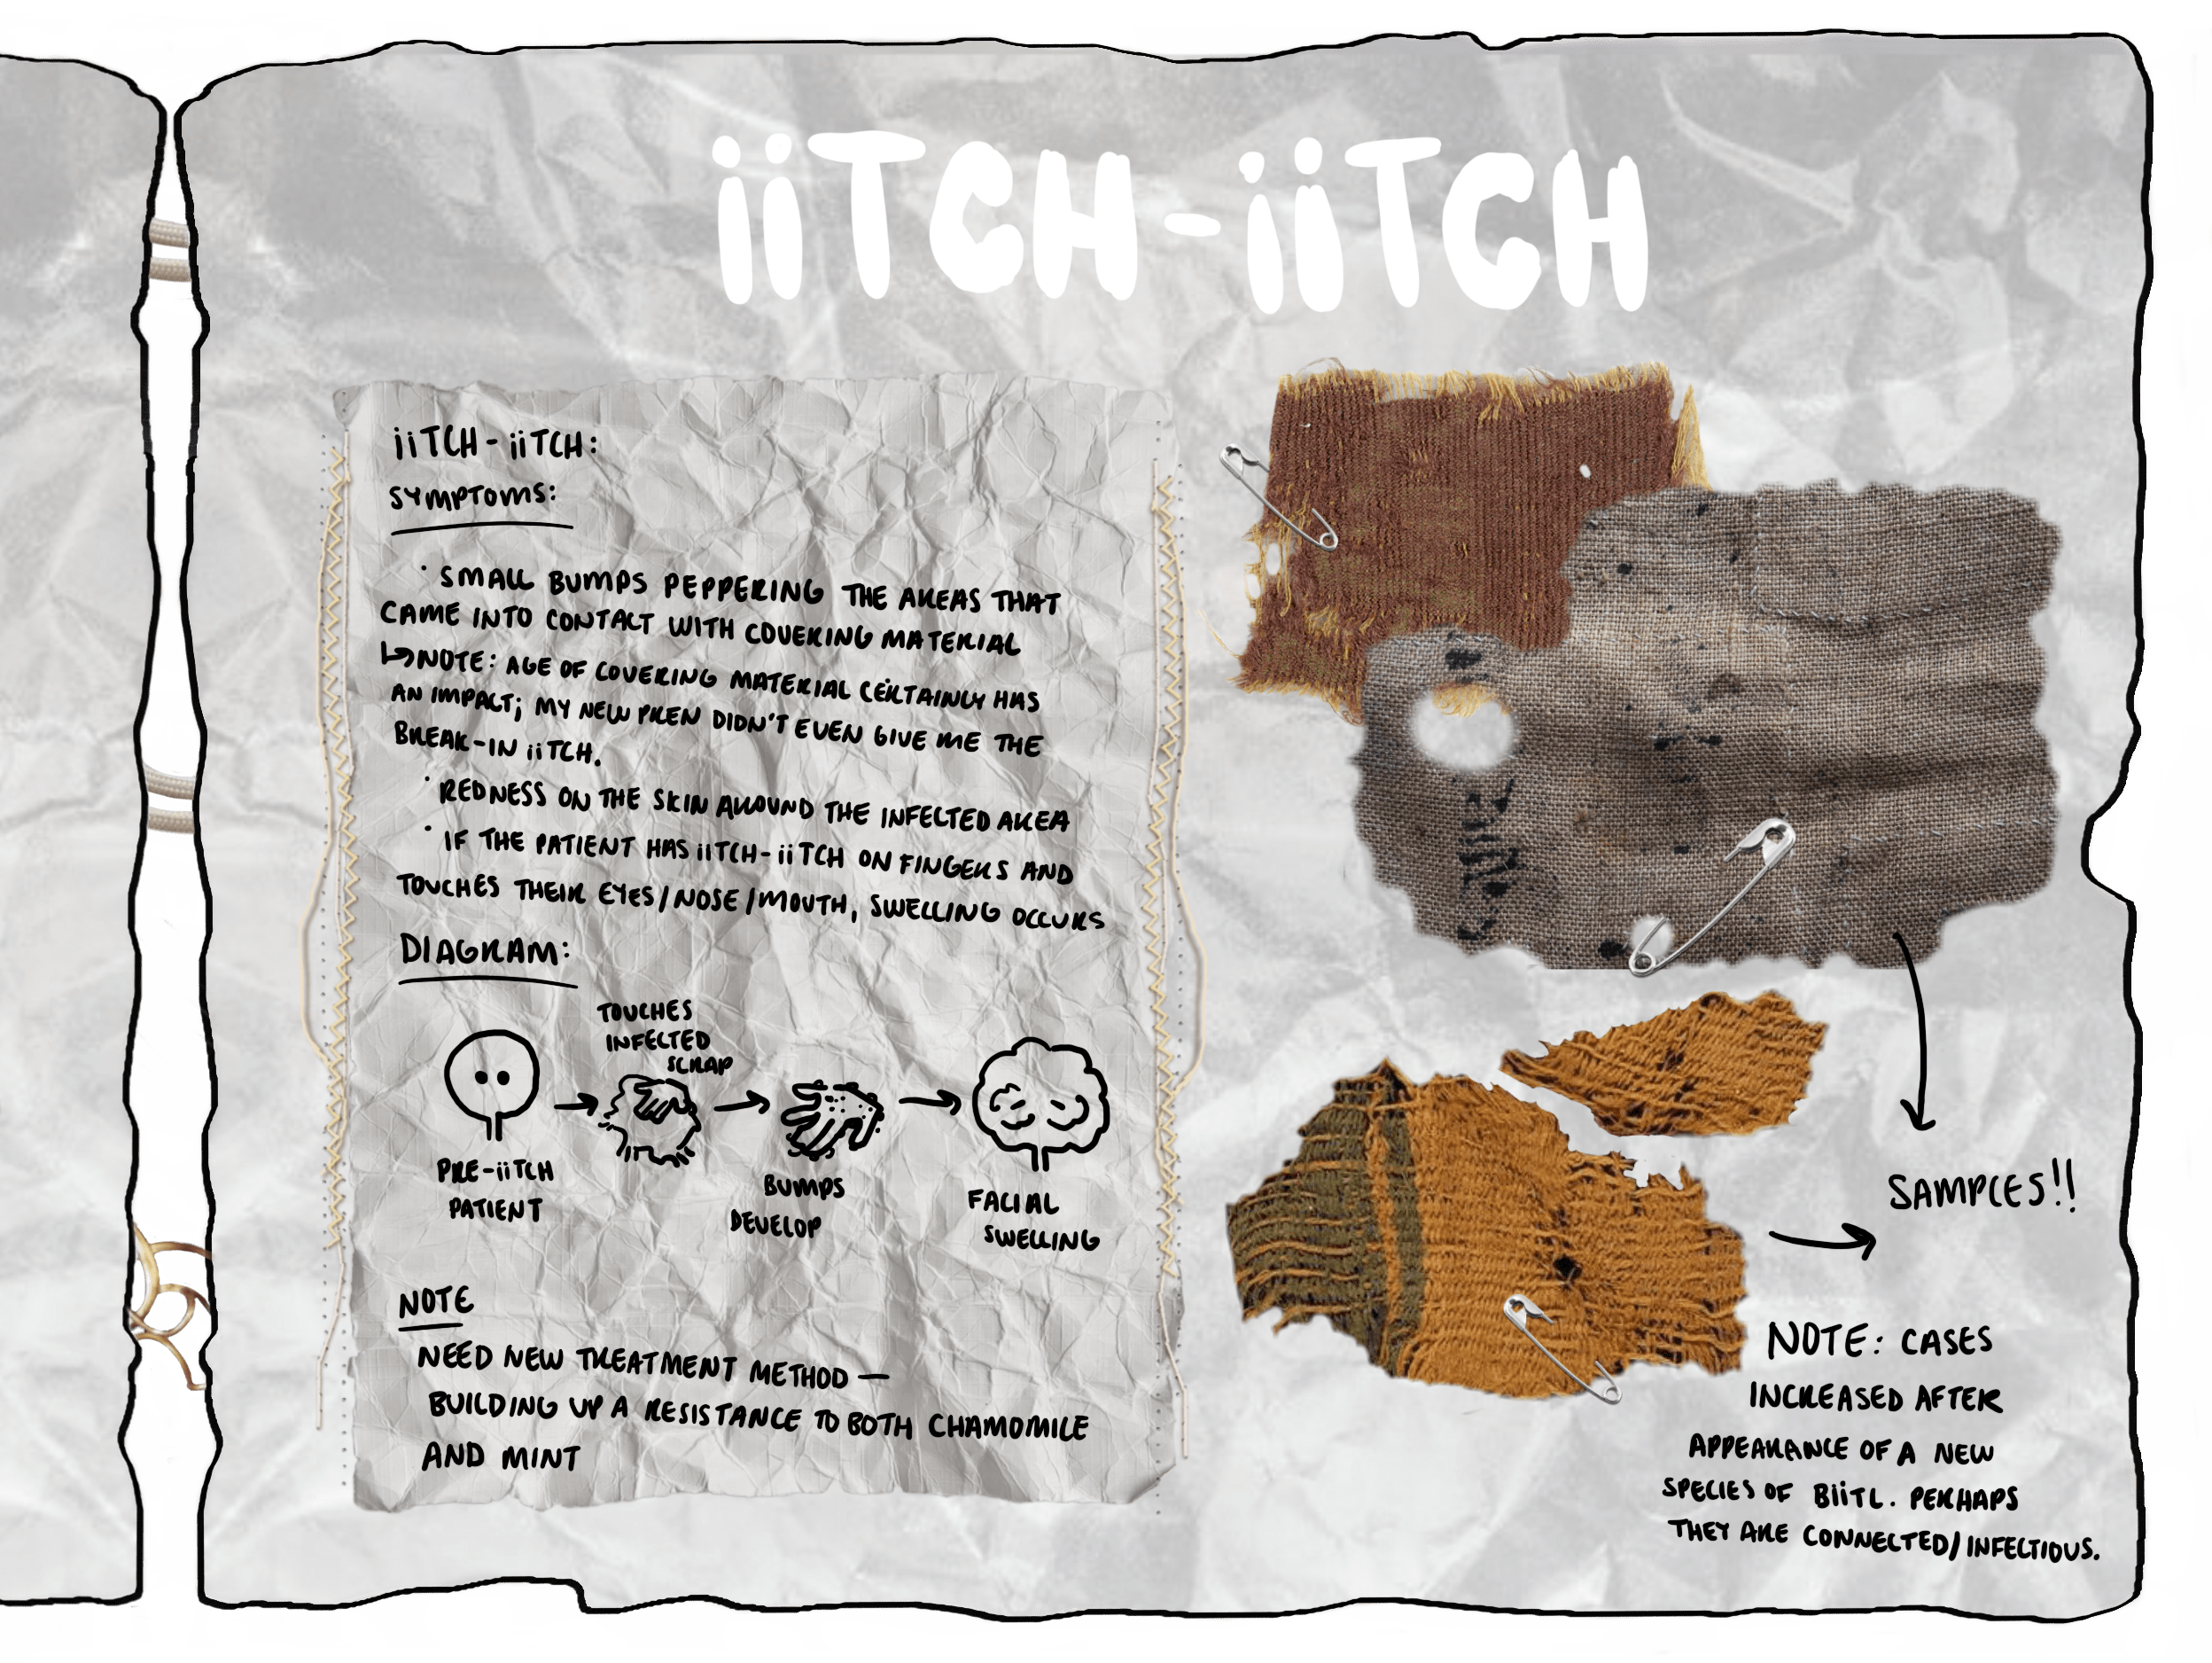 iiTCH-iiTCH
iiTCH-iiTCH:
SYMPTOMS:
· SMALL BUMPS PEPPERING THE AREAS THAT
CAME INTO CONTACT WITH COVERING MATERIAL
↳NOTE: AGE OF COVERING MATERIAL CERTAINLY HAS
AN IMPACT; MY NEW PREN DIDN'T EVEN GIVE ME THE
BREAK-IN iiTCH.
· REDNESS ON THE SKIN AROUND THE INFECTED AREA
· IF THE PATIENT HAS iiTCH-iiTCH ON FINGERS AND
TOUCHES THEIR EYES/NOSE/MOUTH, SWELLING OCCURS
DIAGRAM:
TOUCHES
INFECTED
SCRAP
PRE-iiTCH
PATIENT
BUMPS
DEVELOP
FACIAL
SWELLING
NOTE
NEED NEW TREATMENT METHOD —
BUILDING UP A RESISTANCE TO BOTH CHAMOMILE
AND MINT
SAMPLES!!
NOTE: CASES
INCREASED AFTER
APPEARANCE OF A NEW
SPECIES OF BiiTL. PERHAPS
THEY ARE CONNECTED/INFECTIOUS.